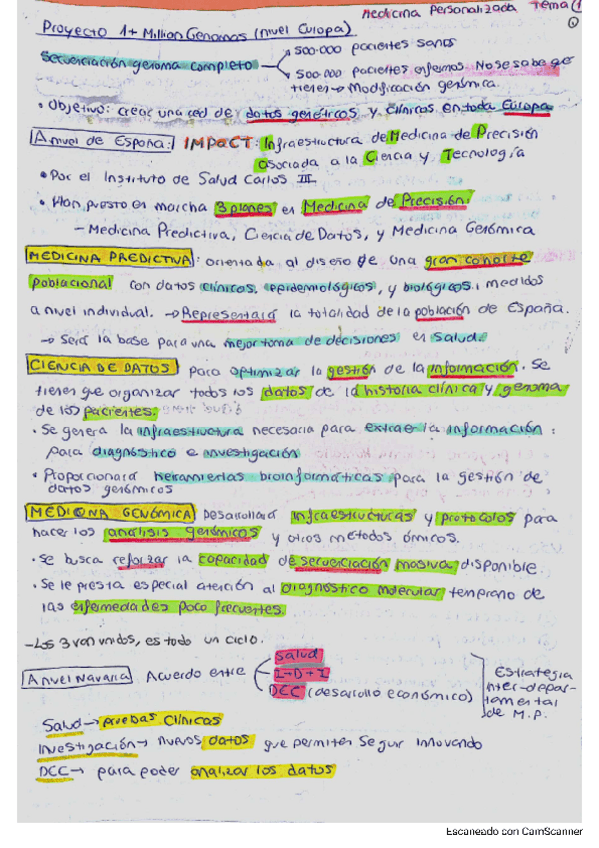 Medicina Personalizada Tema 1
Proyecto 1+ Million Genomas (nivel Europa)
Secuenciación genoma completo
500.000 pacientes sanos
500.000 pacientes enfermos. No se sabe que
tienen → Modificación genómica.
• Objetivo: crear una red de datos genéticos y clínicos en toda Europa
A nivel de España: IMPaCT: Infraestructura de Medicina de Precisión
asociada a la Ciencia y Tecnología
• Por el Instituto de Salud Carlos III
• Han puesto en marcha 3 planes en Medicina de Precisión.
- Medicina Predictiva, Ciencia de Datos, y Medicina Genómica
MEDICINA PREDICTIVA: orientada al diseño de una gran cohorte
poblacional con datos clínicos, epidemiológicos, y biológicos, medidos
a nivel individual. → Representará la totalidad de la población de España.
→ Será la base para una mejor toma de decisiones en salud.
CIENCIA DE DATOS para optimizar la gestión de la información. Se
tienen que organizar todos los datos de la historia clínica y genoma
de los pacientes.
• Se genera la infraestructura necesaria para extraer la información:
para diagnóstico e investigación
• Proporcionará herramientas bioinformáticas para la gestión de
datos genómicos
MEDICINA GENÓMICA Desarrollará infraestructuras y protocolos para
hacer los análisis genómicos y otros métodos ómicos.
• Se busca reforzar la capacidad de secuenciación masiva disponible.
• Se le presta especial atención al diagnóstico molecular temprano de
las enfermedades poco frecuentes.
- Los 3 van unidos, es todo un ciclo.
A nivel Navarra Acuerdo entre
Salud
I+D+I
DEC (desarrollo económico)
Estrategia
inter-depar-
tamental
de M.P.
Salud → pruebas clínicas
Investigación → nuevos datos que permiten seguir innovando
DEC → para poder analizar los datos
Escaneado con CamScanner